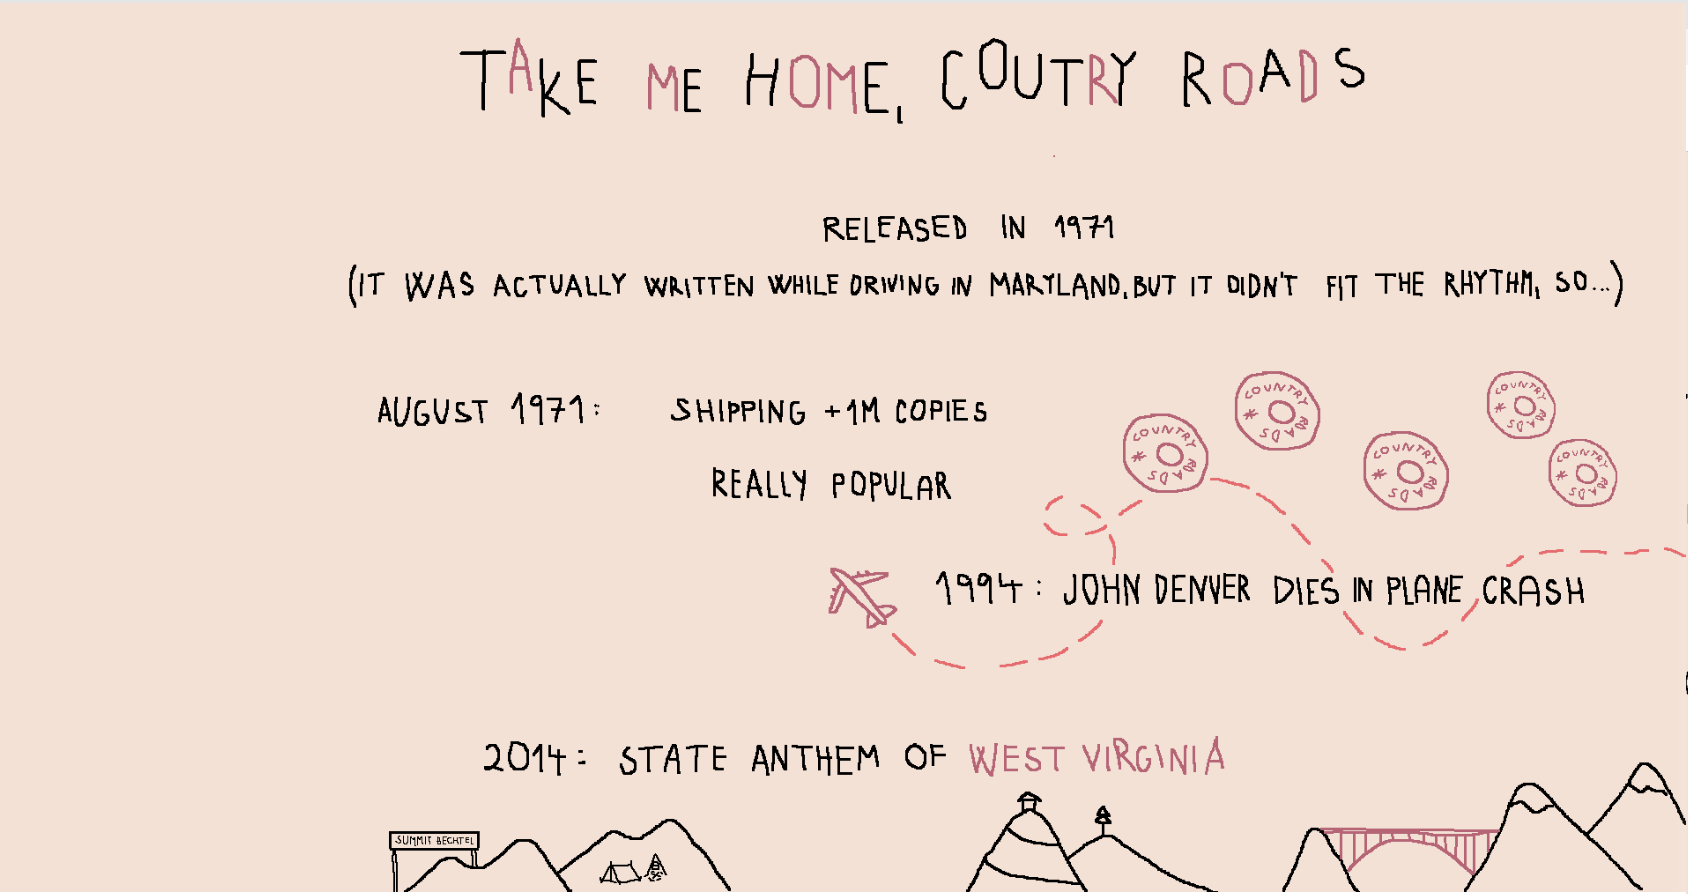 TAKE ME HOME, COUTRY ROADS
RELEASED IN 1971
(IT WAS ACTUALLY WRITTEN WHILE DRIVING IN MARYLAND, BUT IT DIDN'T FIT THE RHYTHM, SO...)
AUGUST 1971: SHIPPING +1M COPIES
REALLY POPULAR
COUNTRY ROADS *
COUNTRY ROADS *
COUNTRY ROADS *
COUNTRY ROADS *
COUNTRY ROADS *
1994: JOHN DENVER DIES IN PLANE CRASH
2014: STATE ANTHEM OF WEST VIRGINIA
SUMMIT BECHTEL